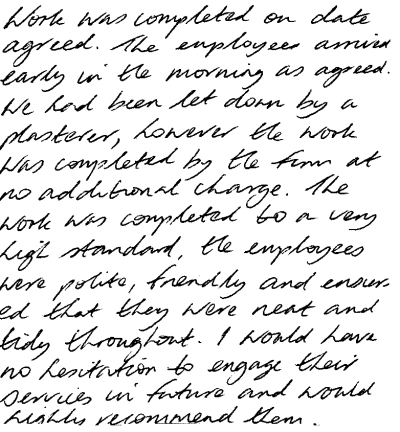 Work was completed on date
agreed. The employees arrived
early in the morning as agreed.
We had been let down by a
plasterer, however the work
was completed by the firm at
no additional charge. The
work was completed to a very
high standard, the employees
were polite, friendly and ensur-
ed that they were neat and
tidy throughout. I would have
no hesitation to engage their
services in future and would
highly recommend them.